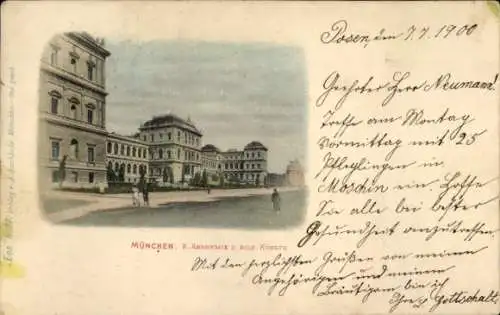 Posen, den 7.7.1900
Geehrter Herr Neumann!
Treffe am Montag
Vormittag mit 25
Pfleglingen in
Moschin ein. Hoffe
Sie alle bei bester
Gesundheit anzutreffen
Mit den herzlichsten Grüßen von meinen
Angehörigen und meiner
Bräutigam bin ich
Ihre Gottschalk.
MÜNCHEN. K. Akademie d. bild. Künste.